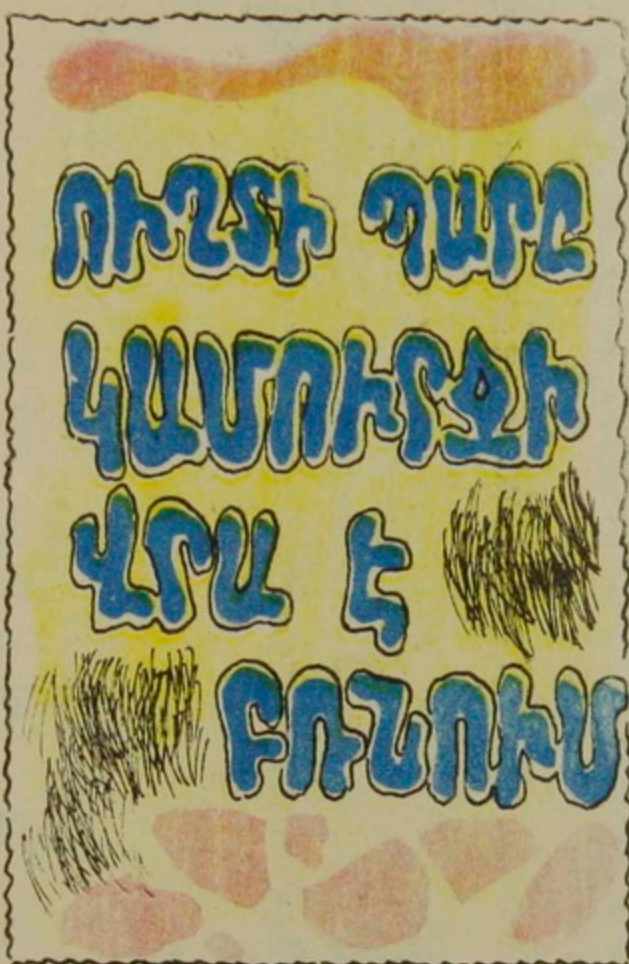 ՈՒՂՏԻ ՊԱՐԸ
ԿԱՄՈՒՐՋԻ
ՎՐԱ Է
ԲՌՆՈՒՄ